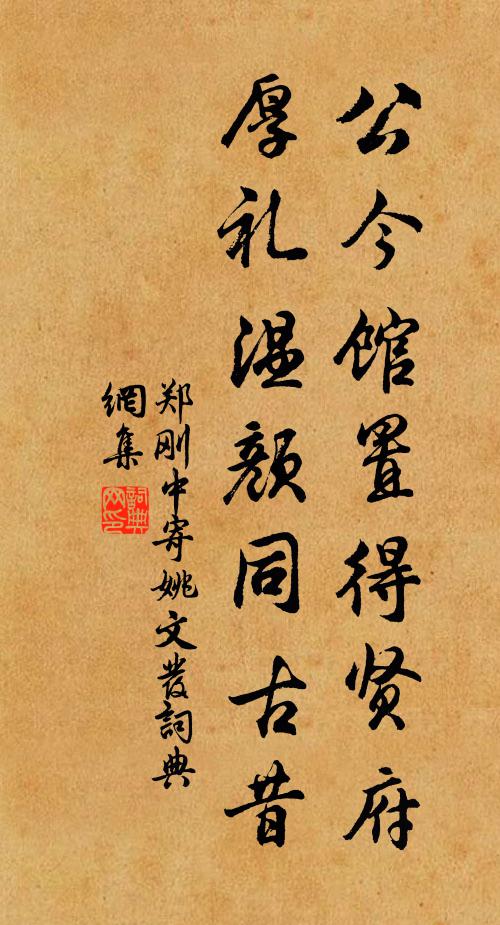 公今馆置得贤府
厚礼温颜同古昔
郑刚中寄姚文發詞典
網集
詞典
网印